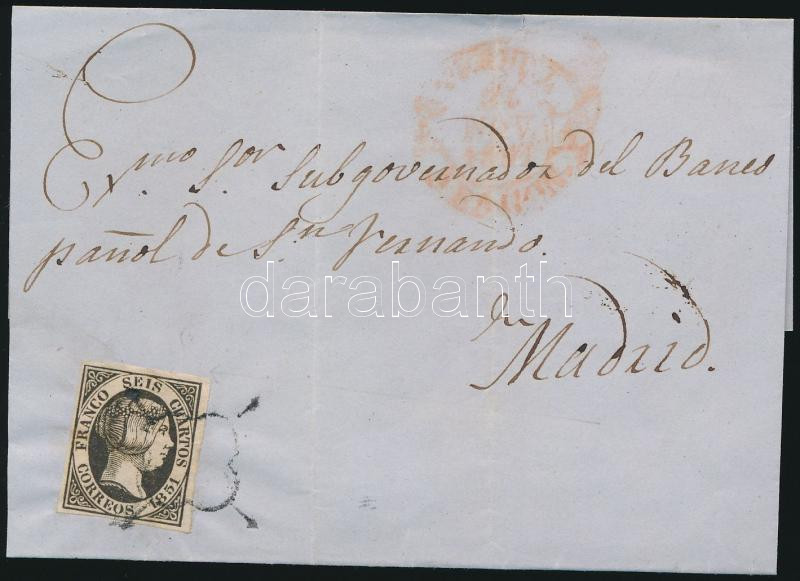 Exmo. Sor. Subgovernador del Banco
pañol de Sn. Fernando.
darabanth
Madrid.
FRANCO SEIS CUARTOS
CORREOS 1851